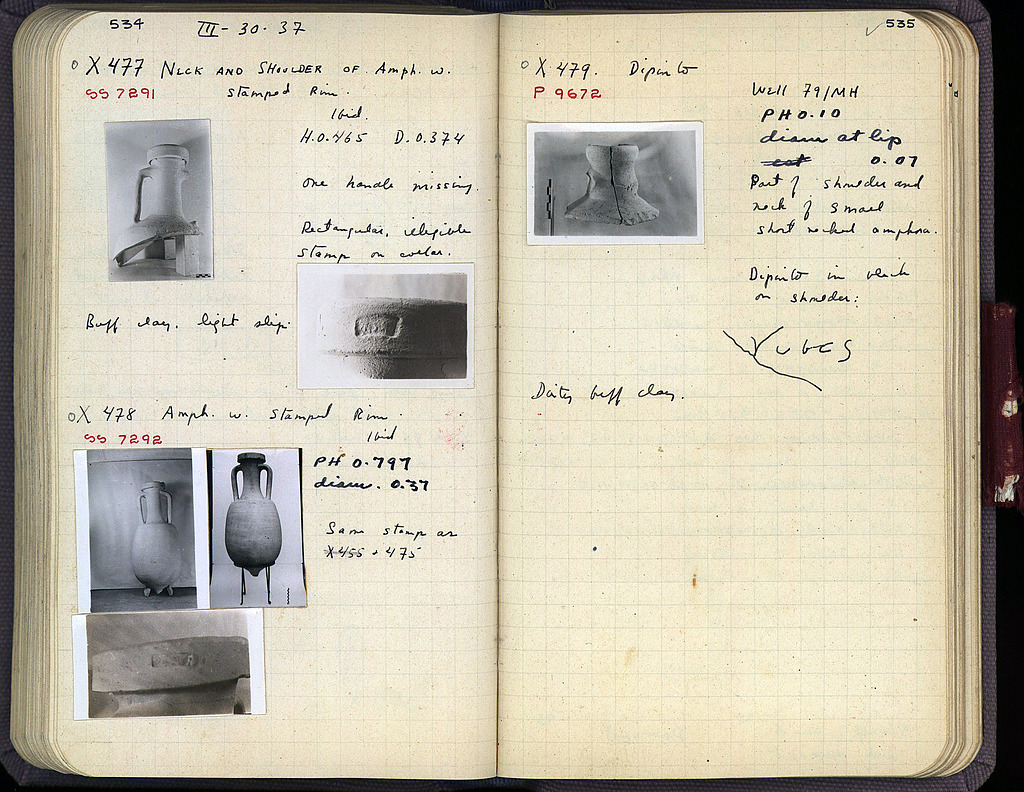 534
III - 30 - 37
X 477 NECK AND SHOULDER OF Amph. w.
SS 7291 stamped Rim.
Ibid.
H. 0.465 D. 0.374
One handle missing.
Rectangular, illegible
stamp on collar.
Buff clay. light slip.
X 478 Amph. w. stamped Rim.
SS 7292 Ibid
PH 0.797
diam. 0.37
Same stamp as
X455 + 475
535
X 479. Dipinto
P 9672
Well 79/MH
PH 0.10
diam at lip
0.07
Part of shoulder and
neck of small
short necked amphora.
Dipinto in black
on shoulder:
Dirty buff clay.